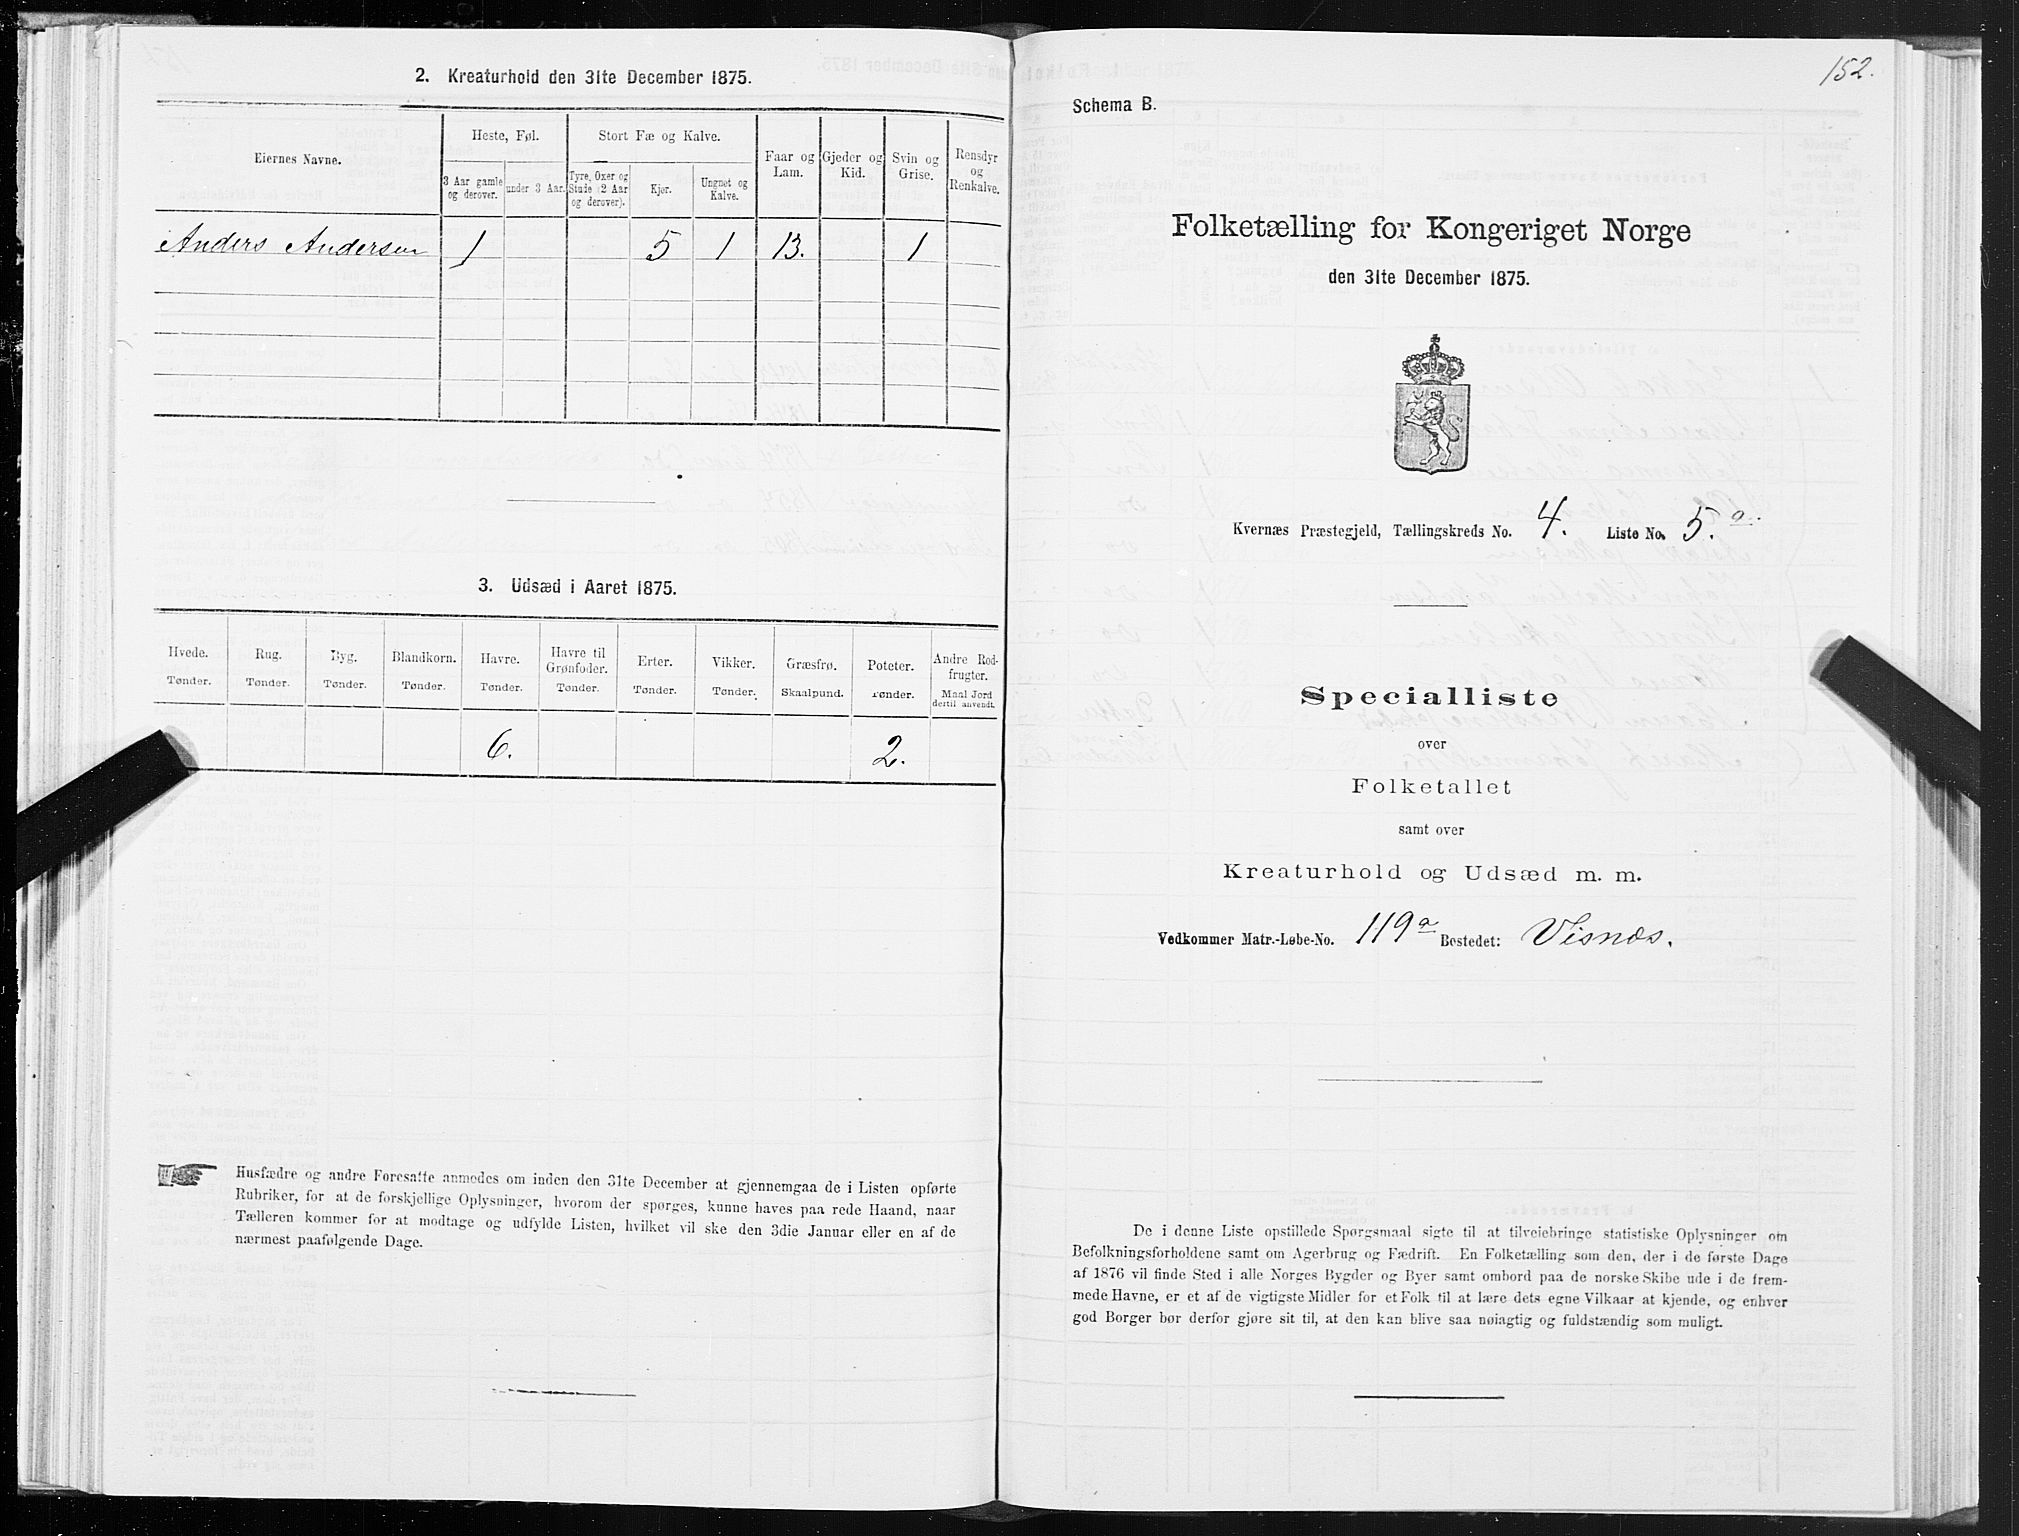 2. Kreaturhold den 31te December 1875.
Eiernes Navne.
Heste, Føl.
3 Aar gamle og derover.
under 3 Aar.
Stort Fæ og Kalve.
Tyre, Oxer og Stude (2 Aar og derover).
Kjør.
Ungnet og Kalve.
Faar og Lam.
Gjeder og Kid.
Svin og Grise.
Rensdyr og Renkalve.
Anders Andersen 1 5 1 13. 1
3. Udsæd i Aaret 1875.
Hvede. Rug. Byg. Blandkorn. Havre. Havre til Grønfoder. Erter. Vikker. Græsfrø. Poteter. Andre Rodfrugter.
Tønder. Tønder. Tønder. Tønder. Tønder. Tønder. Tønder. Tønder. Skaalpund. Tønder. Maal Jord dertil anvendt.
6. 2.
Husfædre og andre Foresatte anmodes om inden den 31te December at gjennemgaa de i Listen opførte
Rubriker, for at de forskjellige Oplysninger, hvorom der spørges, kunne haves paa rede Haand, naar
Tælleren kommer for at modtage og udfylde Listen, hvilket vil ske den 3die Januar eller en af de
nærmest paafølgende Dage.
152.
Schema B.
Folketælling for Kongeriget Norge
den 31te December 1875.
Kvernæs Præstegjeld, Tællingskreds No. 4. Liste No. 5. a.
Specialliste
over
Folketallet
samt over
Kreaturhold og Udsæd m. m.
Vedkommer Matr.-Løbe-No. 119a Bostedet: Visnæs.
De i denne Liste opstillede Spørgsmaal sigte til at tilveiebringe statistiske Oplysninger om
Befolkningsforholdene samt om Agerbrug og Fædrift. En Folketælling som den, der i de første Dage
af 1876 vil finde Sted i alle Norges Bygder og Byer samt ombord paa de norske Skibe ude i de frem-
mede Havne, er et af de vigtigste Midler for et Folk til at lære dets egne Vilkaar at kjende, og enhver
god Borger bør derfor gjøre sit til, at den kan blive saa nøiagtig og fuldstændig som muligt.